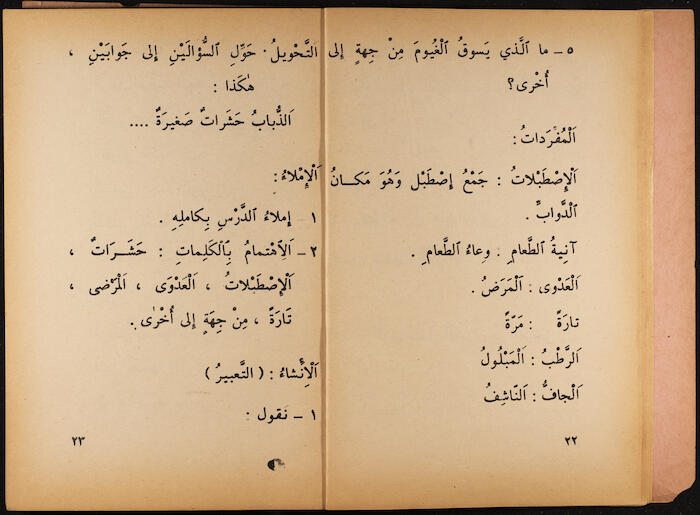 ٥ - ما ٱلَّذي يَسوقُ ٱلْغُيومَ مِنْ جِهةٍ إلى
أُخْرى؟
اَلْمُفْرَداتُ:
اَلْإِصْطَبْلاتُ : جَمْعُ إصْطَبْل وَهُوَ مَكانُ
الدَّوابِّ .
آنِيَةُ الطَّعامِ : وِعاءُ الطَّعامِ .
اَلْعَدْوى : اَلْمَرَضُ .
تارَةً : مَرّةً
اَلرَّطْبُ : اَلْمَبْلُولُ
اَلْجافُّ : اَلنّاشِفُ
٢٢
التَّحْويلُ . حَوِّلِ ٱلسُّؤالَيْنِ إلى جَوابَيْنِ ،
هٰكَذا :
اَلذُّبابُ حَشَراتٌ صَغيرَةٌ ....
اَلْإمْلاءُ :
١ - إملاءُ الدَّرْسِ بِكامِلِهِ .
٢ - اَلِٱهْتمامُ بِٱلْكَلِماتِ : حَشَراتٌ ،
اَلْإصْطَبْلاتُ ، اَلْعَدْوَى ، اَلْمَرْضى ،
تَارَةً ، مِنْ جِهَةٍ إلى أُخْرٰى .
اَلْإنْشاءُ : ( التَّعبيرُ )
١ - نَقول :
٢٣